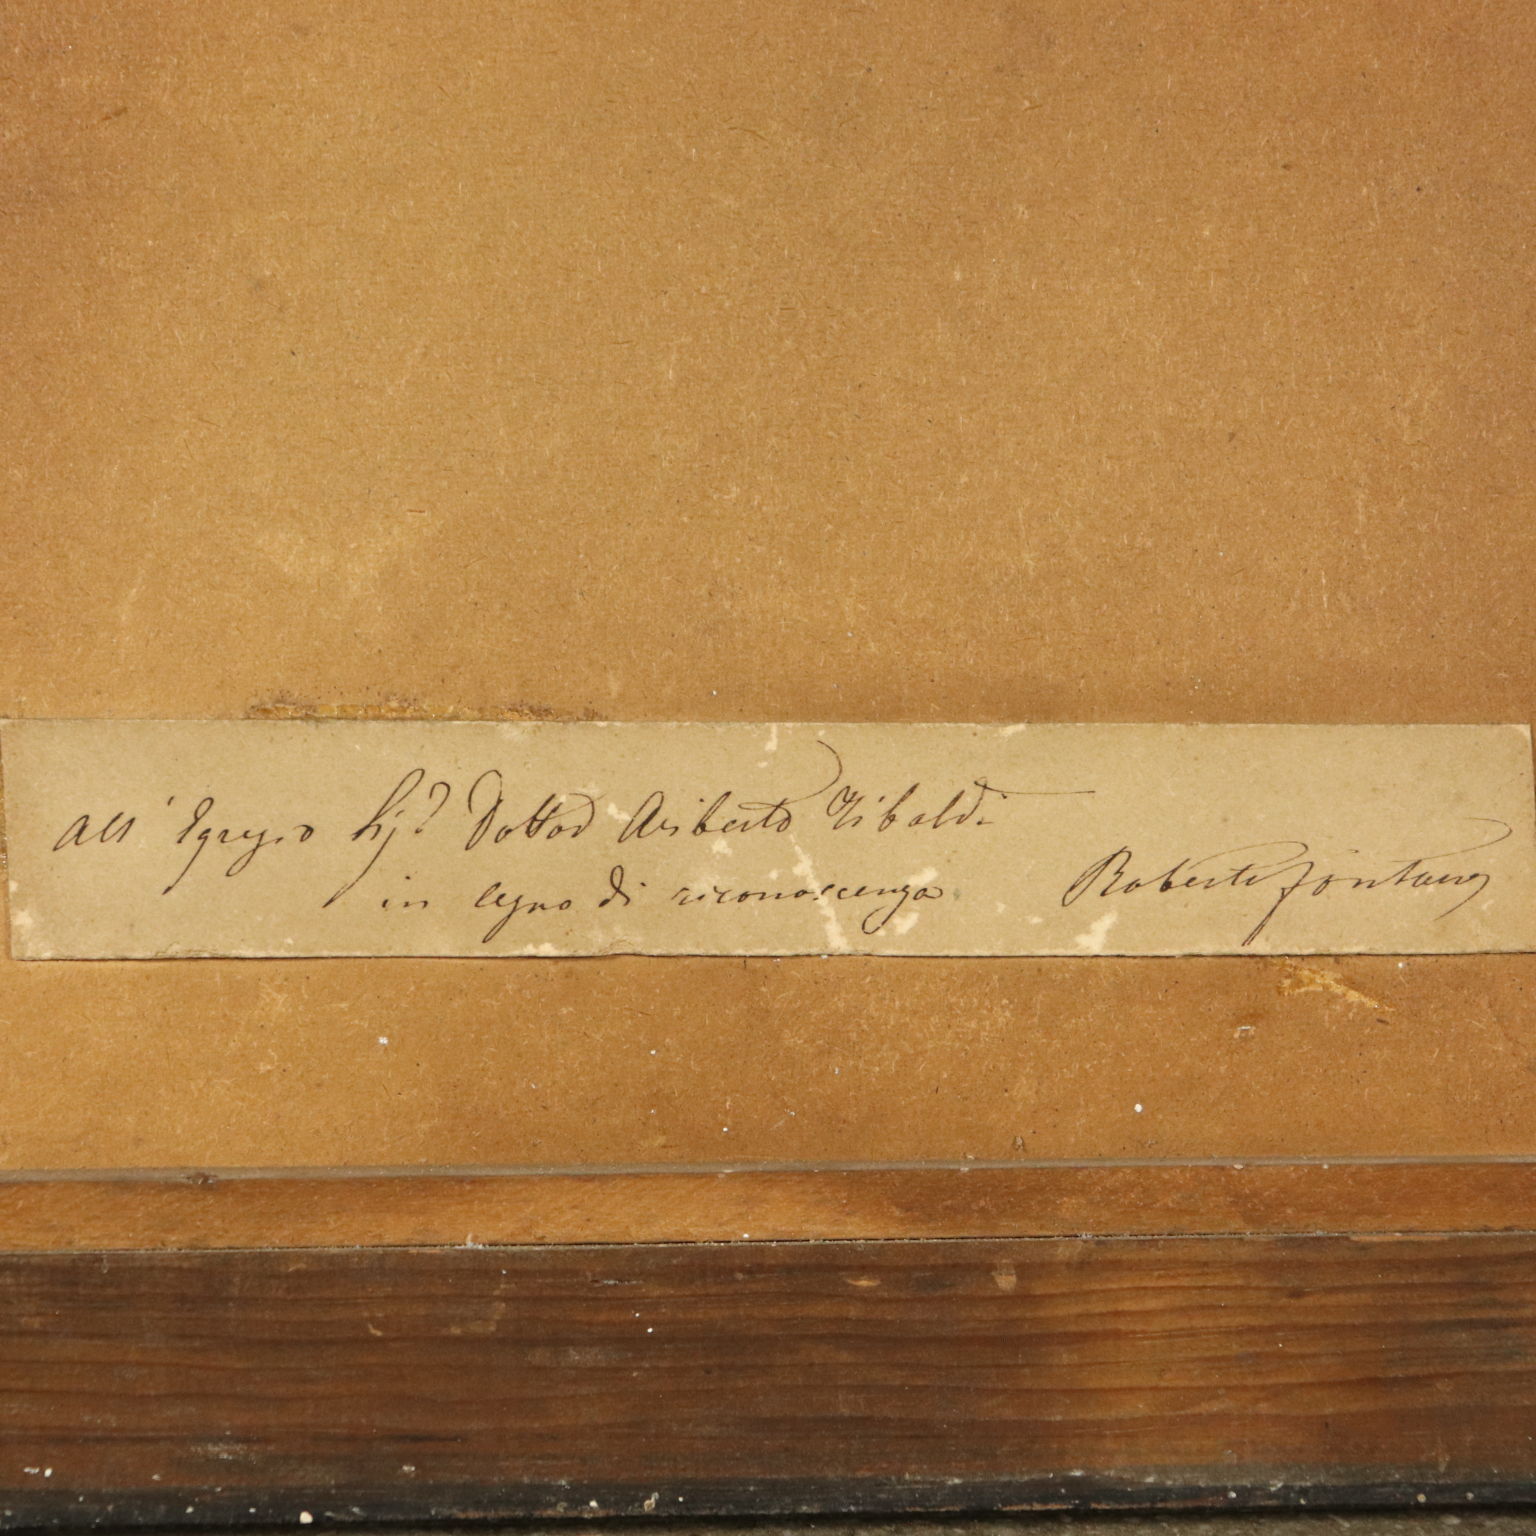 All' Egregio Sig.r Dottor Ariberto Tibaldi
in segno di riconoscenza
Roberto Fontana